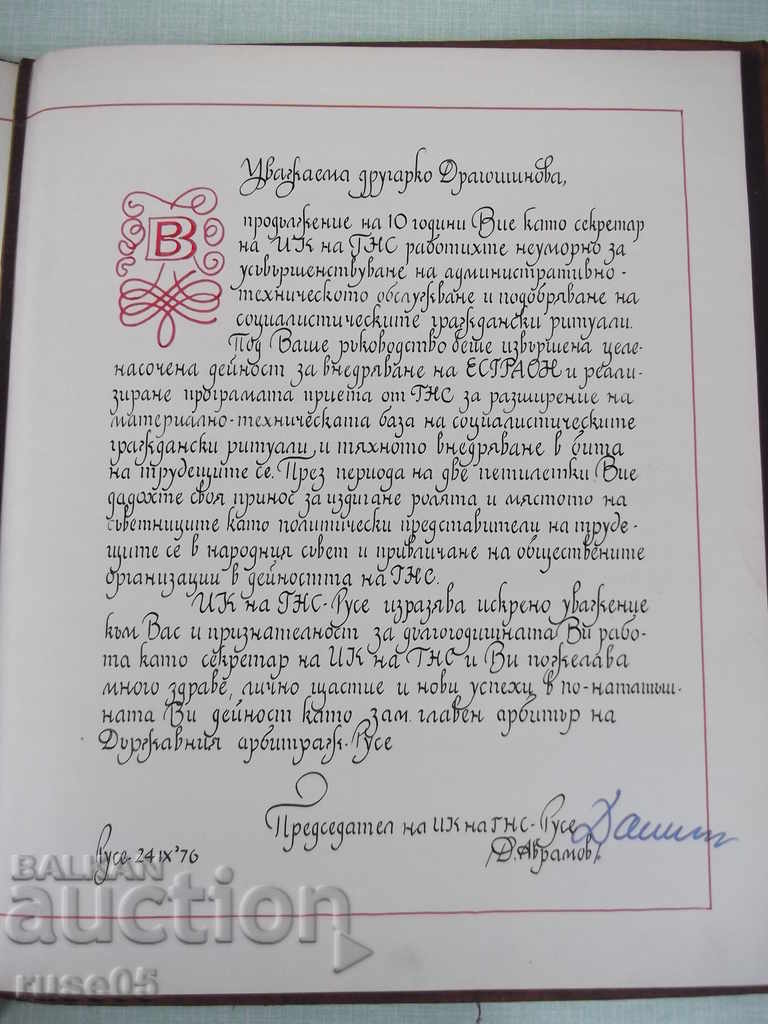 Уважаема другарко Драгошинова,
В продължение на 10 години Вие като секретар
на ИК на ГНС работихте неуморно за
усъвършенствуване на административно-
техническото обслужване и подобряване на
социалистическите граждански ритуали.
Под Ваше ръководство беше извършена целе-
насочена дейност за внедряване на ЕСГРАОН и реали-
зиране програмата приета от ГНС за разширение на
материално-техническата база на социалистическите
граждански ритуали и тяхното внедряване в бита
на трудещите се. През периода на две петилетки Вие
дадохте своя принос за издигане ролята и мястото на
съветниците като политически представители на труде-
щите се в народния съвет и привличане на обществените
организации в дейността на ГНС.
ИК на ГНС-Русе изразява искрено уважение
към Вас и признателност за дългогодишната Ви рабо-
та като секретар на ИК на ГНС и Ви пожелава
много здраве, лично щастие и нови успехи в по-нататъш-
ната Ви дейност като зам. главен арбитър на
Държавния арбитраж-Русе
Председател на ИК на ГНС-Русе
Русе-24 IX '76
/Д. Абрамов/
BALKAN
auction
ruse05